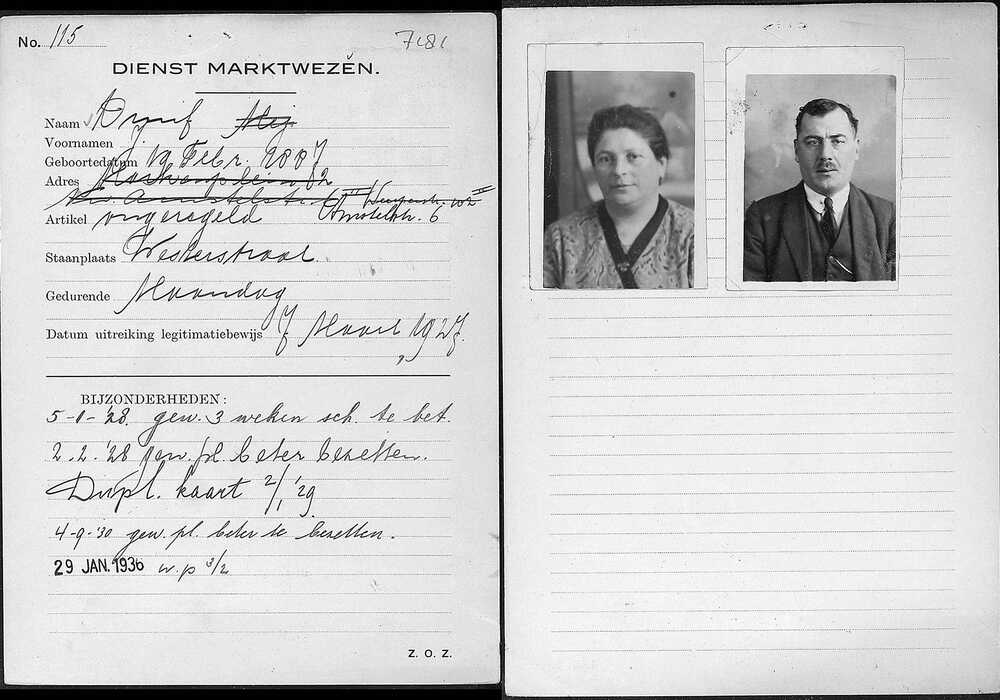 No. 115
7181
DIENST MARKTWEZĔN.
Naam Druif
Voornamen J.
Geboortedatum 19 Febr. 1887
Adres Markenplein 12
Amstelstr. 6
Artikel ongeregeld
Staanplaats Westerstraat
Gedurende Maandag
Datum uitreiking legitimatiebewijs 7 Maart 1927.
BIJZONDERHEDEN:
5-1-'28. gew. 3 weken sch. te bet.
2.2.'28 gew. pl. beter bezetten.
Dupl. kaart 2/1 '29
4-9-'30 gew. pl. beter te bezetten.
29 JAN. 1936 w.p 3/2
Z. O. Z.